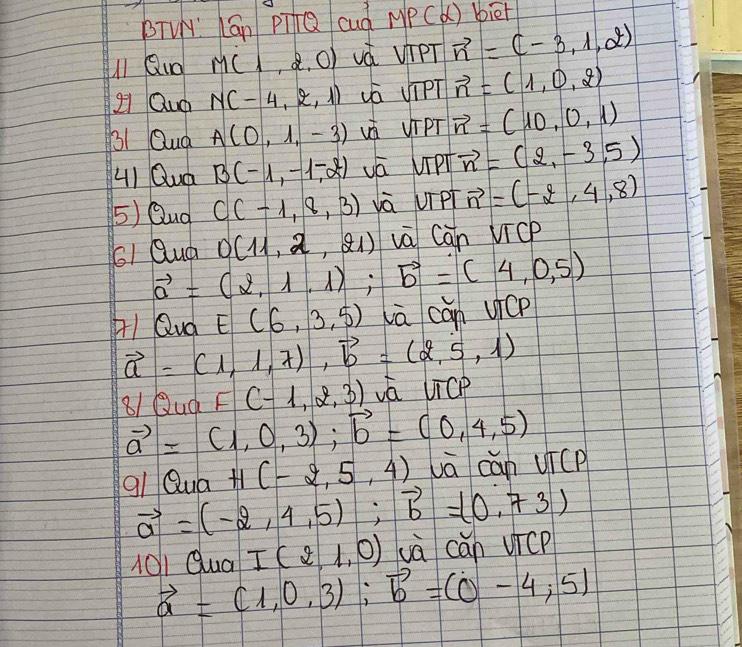 BTVN: Lập PTTQ của MP(α) biết
1/ Qua M(1, 2, 0) và VTPT n⃗ = (-3, 1, 2)
2/ Qua N(-4, 2, 1) và VTPT n⃗ = (1, 0, 2)
3/ Qua A(0, 1, -3) và VTPT n⃗ = (10, 0, 1)
4/ Qua B(-1, -1, -2) và VTPT n⃗ = (2, -3, 5)
5) Qua C(-1, 8, 3) và VTPT n⃗ = (-2, 4, 8)
6/ Qua D(11, 2, 21) và cặp VTCP
a⃗ = (2, 1, 1) ; b⃗ = (4, 0, 5)
7/ Qua E (6, 3, 5) và cặp VTCP
a⃗ = (1, 1, 7), b⃗ = (2, 5, 1)
8/ Qua F (-1, 2, 3) và VTCP
a⃗ = (1, 0, 3) ; b⃗ = (0, 4, 5)
9/ Qua H (-2, 5, 4) và cặp VTCP
a⃗ = (-2, 4, 5) ; b⃗ = (0, 7 3)
10/ Qua I (2, 1, 0) và cặp VTCP
a⃗ = (1, 0, 3) ; b⃗ = (0 -4 ; 5)